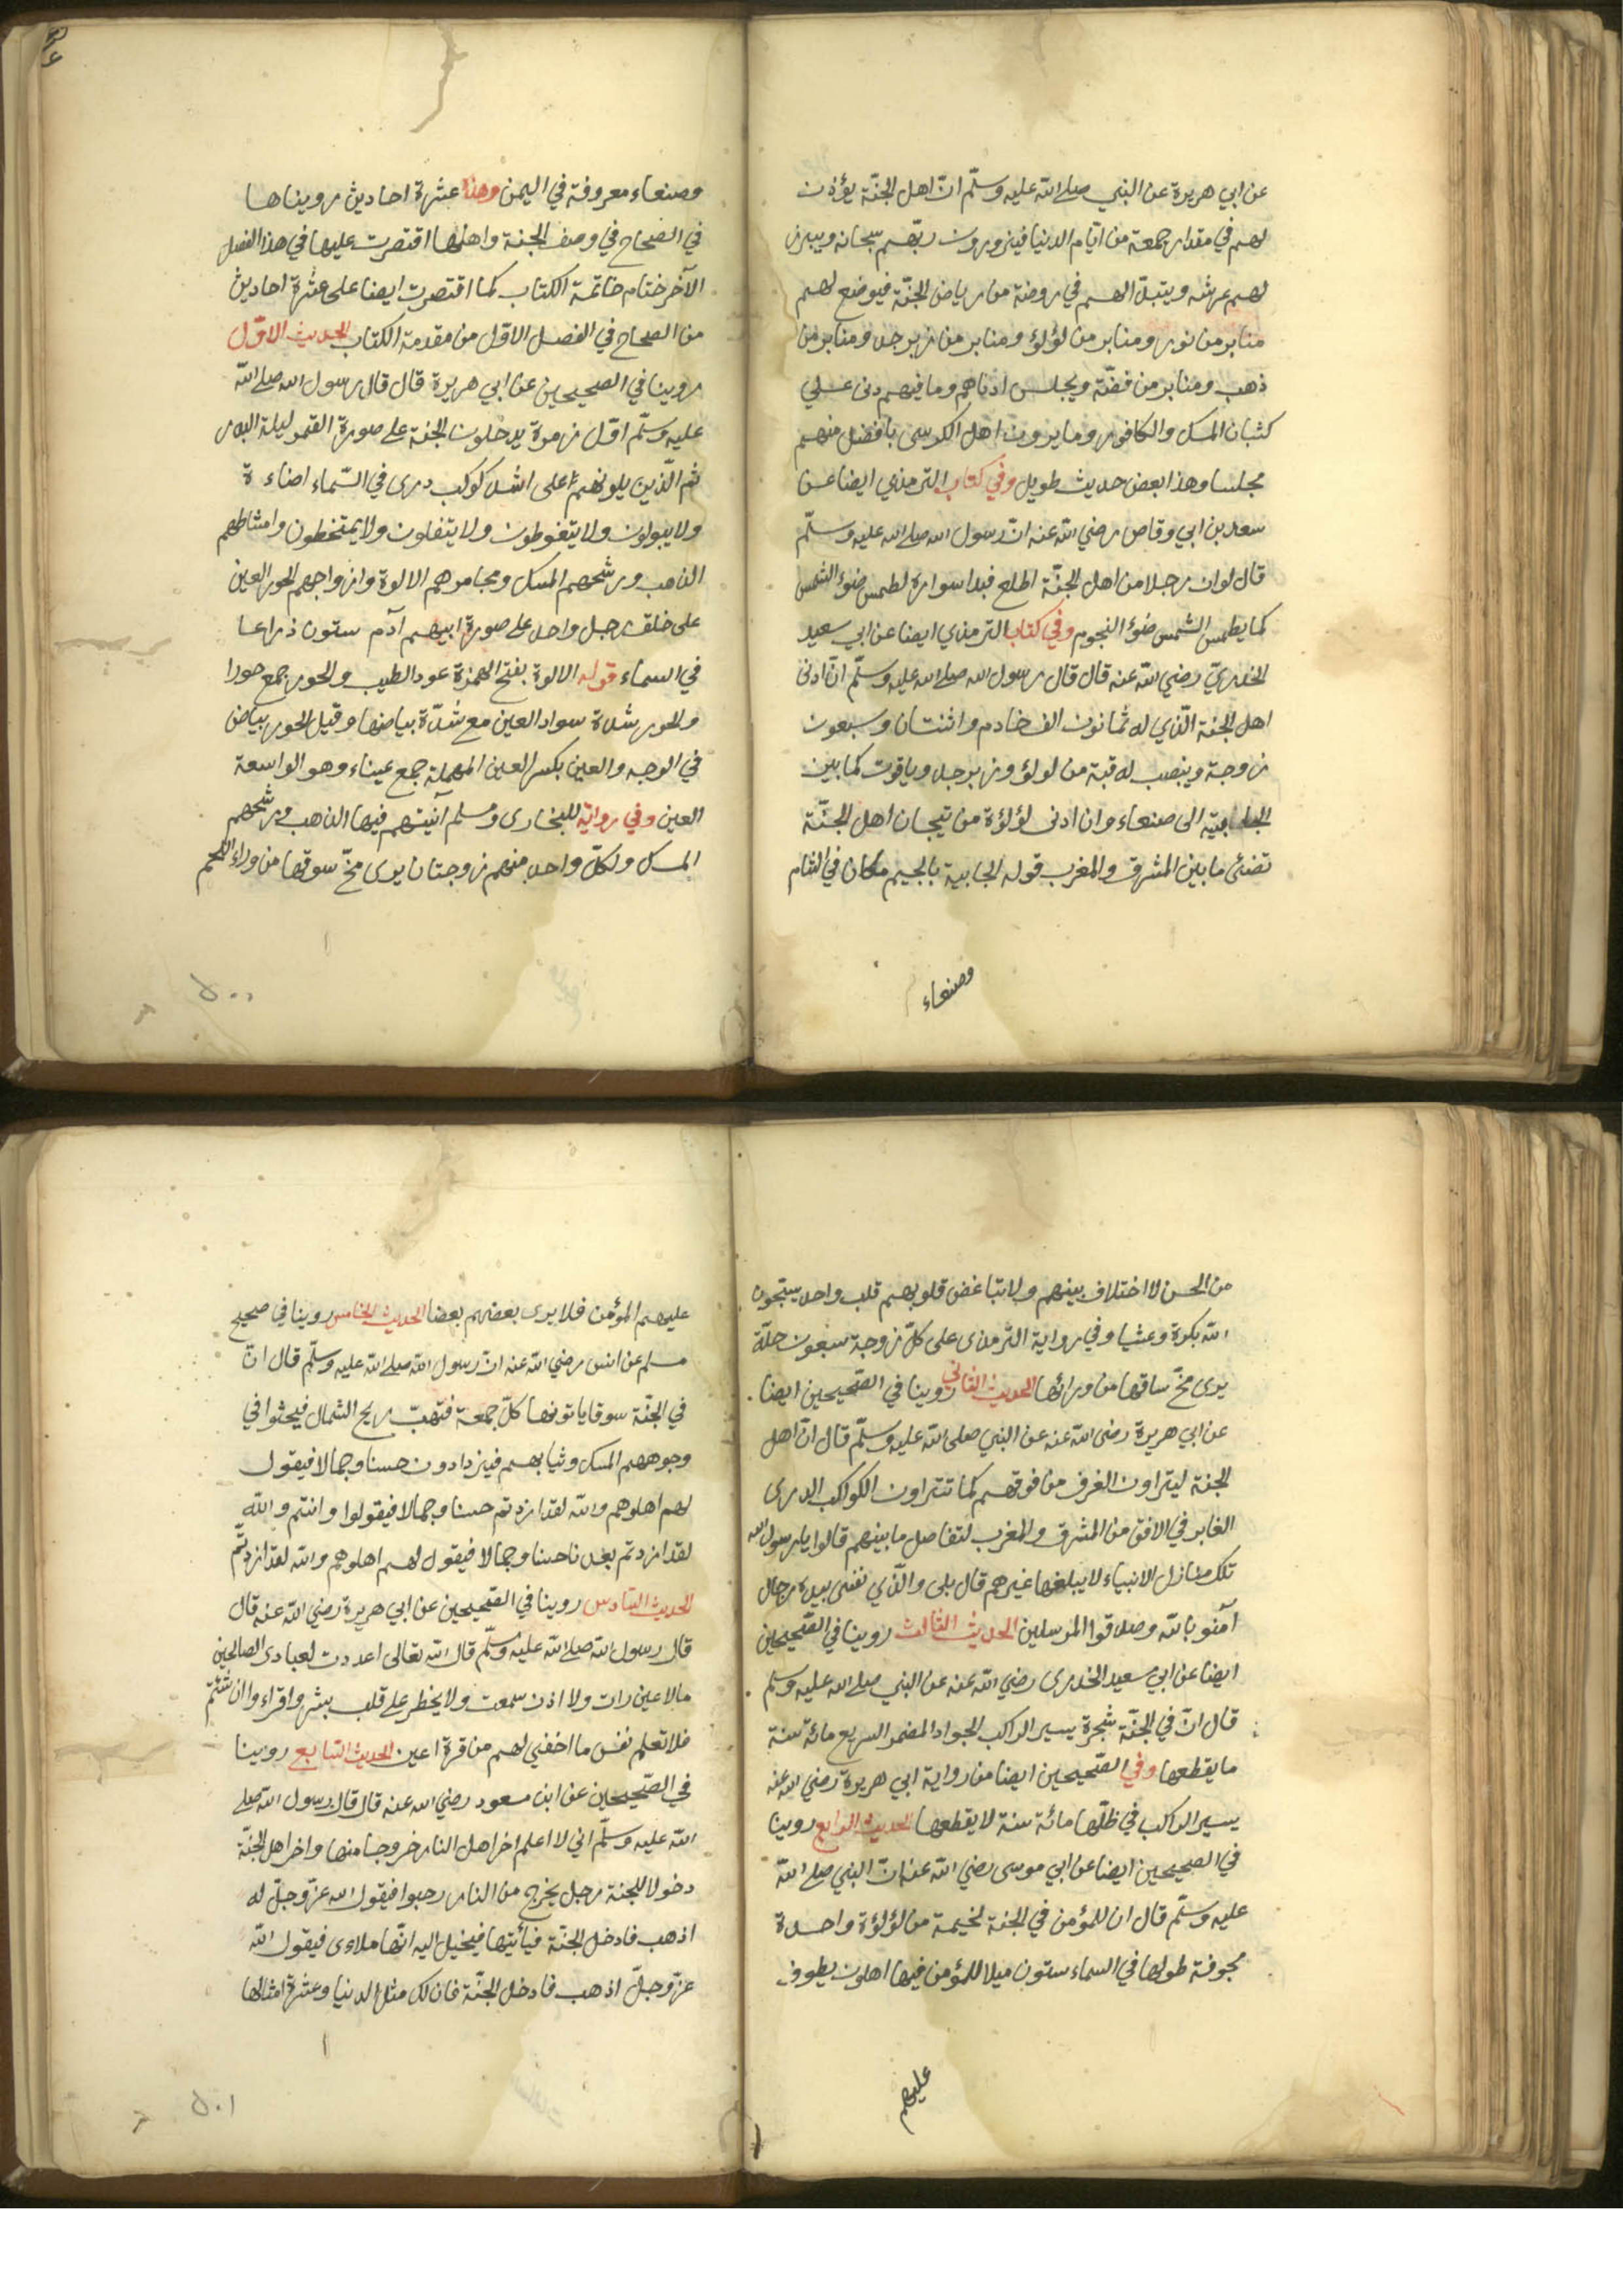 عن ابي هريرة عن النبي صلى الله عليه وسلّم انّ اهل الجنّة يؤذن
لهم في مقدار جمعة من ايّام الدنيا فيزورون ربّهم سبحانه ويبرز
لهم عرشه ويتبدّا لهم في روضة من رياض الجنّة فيوضع لهم
منابر من نور ومنابر من لؤلؤ ومنابر من زبرجد ومنابر من
ذهب ومنابر من فضّة ويجلس ادناهم وما فيهم دنى على
كثبان المسك والكافور وما يرون اهل الكرسى بافضل منهم
مجلسا وهذا بعض حديث طويل وفي كتاب الترمذي ايضا عن
سعد بن ابي وقاص رضي الله عنه انّ رسول الله صلى الله عليه وسلّم
قال لو ان رجلا من اهل الجنّة اطلع فبدا سواره لطمس ضوء الشمس
كما يطمس الشمس ضوء النجوم وفي كتاب الترمذي ايضا عن ابي سعيد
الخدريّ رضي الله عنه قال قال رسول الله صلى الله عليه وسلّم انّ ادنى
اهل الجنة الّذي له ثمانون الف خادم واثنتان وسبعون
زوجة وينصب له قبة من لولؤ وزبرجد وياقوت كما بين
الجابية الى صنعاء وان ادنى لؤلؤة من تيجان اهل الجنّة
تضئ ما بين المشرق والمغرب قوله الجابية بالجيم مكان في الشام
وصنعاء
وصنعاء معروفة في اليمن وهذا عشرة احاديث رويناها
في الصحاح في وصف الجنة واهلها اقتصرت عليها في هذا الفصل
الآخر ختام خاتمة الكتاب كما اقتصرت ايضا على عشرة احاديث
من الصحاح في الفصل الاوّل من مقدمة الكتاب الحديث الاوّل
روينا في الصحيحين عن ابي هريرة قال قال رسول الله صلى الله
عليه وسلّم اوّل زمرة يدخلون الجنة على صورة القمر ليلة البدر
ثم الّذين يلونهم على اشد كوكب درى في السّماء اضاءة
ولا يبولون ولا يتغوطون ولا يتفلون ولا يمتخطون وامشاطهم
الذهب ورشحهم المسك ومجامرهم الالوة وازواجهم الحور العين
على خلق رجل واحد على صورة ابيهم آدم ستون ذراعا
في السماء قوله الالوة بفتح الهمزة عود الطيب والحور جمع حورا
والحور شدة سواد العين مع شدّة بياضها وقيل الحور بياض
في الوجه والعين بكسر العين المهملة جمع عيناء وهو الواسعة
العين وفي رواية للبخارى ومسلم آنيتهم فيها الذهب ورشحهم
المسك ولكلّ واحد منهم زوجتان يرى مخّ سوقها من وراء اللحم
٥٠٠
من الحسن لا اختلاف بينهم ولا تباغض قلوبهم قلب واحد يسبّحون
الله بكرة وعشيا وفي رواية الترمذى على كلّ زوجة سبعون حلّة
يرى مخّ ساقها من ورائها الحديث الثاني روينا في الصّحيحين ايضا
عن ابي هريرة رضى الله عنه عن النبي صلى الله عليه وسلّم قال انّ اهل
الجنة ليتراون الغرف من فوقهم كما تتراون الكواكب الدرى
الغابر في الافق من المشرق والمغرب لتفاضل ما بينهم قالوا يا رسول الله
تلك منازل الانبياء لا يبلغها غيرهم قال بلى والّذي نفسى بيده رجال
آمنو بالله وصدقوا المرسلين الحديث الثالث روينا في الصّحيحين
ايضا عن ابي سعيد الخدرى رضي الله عنه عن النبي صلى الله عليه وسلم
قال انّ في الجنّة شجرة يسير الراكب الجواد المضمر السريع مائة سنة
ما يقطعها وفي الصّحيحين ايضا من رواية ابي هريرة رضي الله عنه
يسير الراكب في ظلّها مائة سنة لا يقطعها الحديث الرابع روينا
في الصحيحين ايضا عن ابي موسى رضي الله عنه انّ النبي صلى الله
عليه وسلّم قال ان للمؤمن في الجنة لخيمة من لؤلؤة واحدة
مجوفة طولها في السماء ستون ميلا للمؤمن فيها اهلون يطوف
عليهم
عليهم المؤمن فلا يرى بعضهم بعضا الحديث الخامس روينا في صحيح
مسلم عن انس رضي الله عنه انّ رسول الله صلى الله عليه وسلّم قال انّ
في الجنّة سوقا ياتونها كلّ جمعة فتهبّ ريح الشمال فيحثوا في
وجوههم المسك وثيابهم فيزدادون حسنا وجمالا فيقول
لهم اهلوهم والله لقد ازددتم حسنا وجمالا فيقولوا وانتم والله
لقد ازددتم بعدنا حسنا وجمالا فيقول لهم اهلوهم والله لقد ازددتّم
الحديث السّادس روينا في الصّحيحين عن ابي هريرة رضي الله عنه قال
قال رسول الله صلى الله عليه وسلّم قال الله تعالى اعددت لعبادى الصالحين
ما لا عين رات ولا اذن سمعت ولا يخطر على قلب بشر واقراء وان شئتم
فلا تعلم نفس ما اخفي لهم من قرة اعين الحديث السّابع روينا
في الصّحيحين عن ابن مسعود رضي الله عنه قال قال رسول الله صلى
الله عليه وسلّم اني لا اعلم اخر اهل النار خروجا منها واخر اهل الجنّة
دخولا للجنة رجل يخرج من النار حبوا فيقول الله عزّ وجلّ له
اذهب فادخل الجنّة فيأتيها فيخيل اليه انّها ملاءى فيقول الله
عزّ وجلّ اذهب فادخل الجنّة فان لك مثل الدنيا وعشرة امثالها
٥٠١